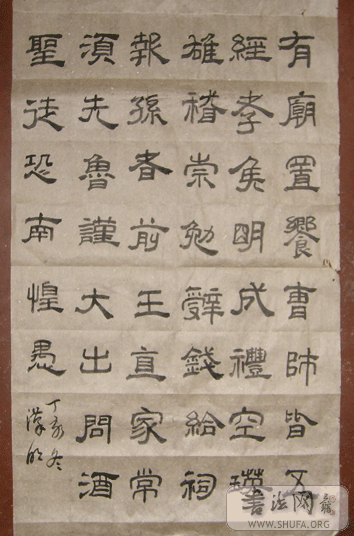 有廟置饗曹師皆
經孝侯明成禮空瑛
雄稽崇勉辭錢給祠
報孫者前王直家常
須先魯謹大出問酒
聖徒恐南惶愚
丁亥冬
漢
書法网
WWW.SHUFA.ORG